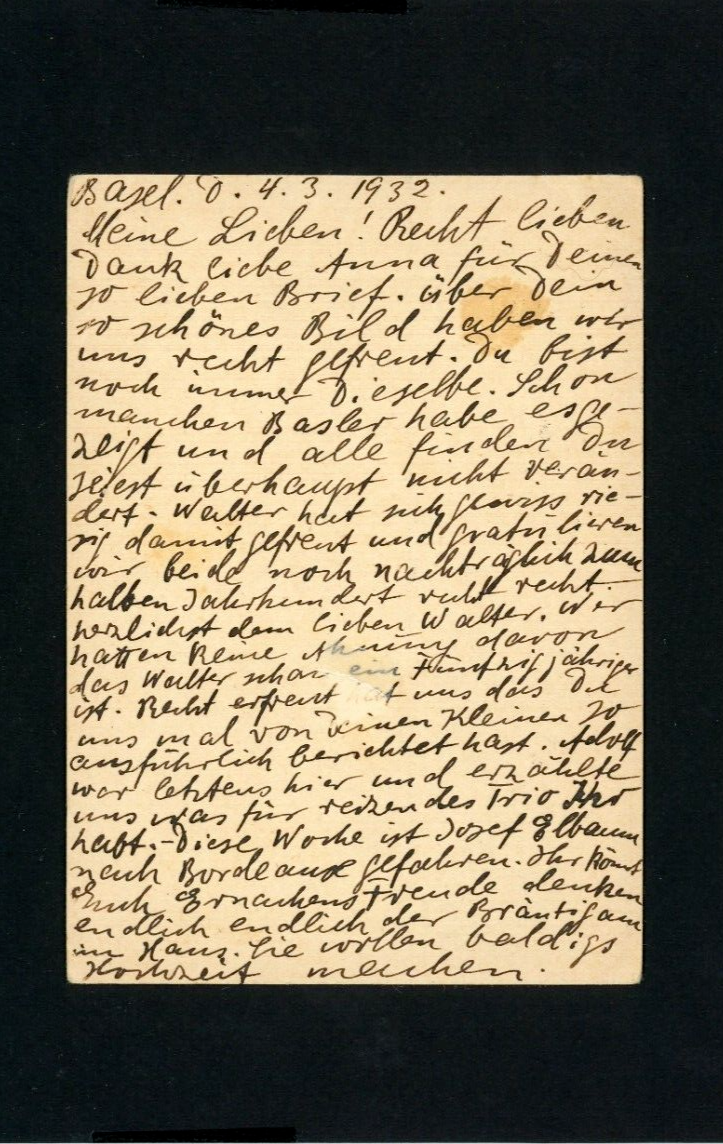 Basel. D. 4. 3. 1932.
Meine Lieben! Recht lieben
Dank liebe Anna für Deinen
so lieben Brief. über Dein
so schönes Bild haben wir
uns recht gefreut. Du bist
noch immer Dieselbe. Schon
manchen Basler habe esge-
zeigt und alle finden Du
seiest überhaupt nicht verän-
dert. Walter hat sich gewiss rie-
sig damit gefreut und gratulieren
wir beide noch nachträglich zum
halben Jahrhundert recht recht
herzlichst dem lieben Walter. Wir
hatten keine Ahnung davon
das Walter schon ein Fünfzigjähriger
ist. Recht erfreut hat uns das Du
uns mal von Deinen Kleinen so
ausführlich berichtet hast. Adolf
war letztens hier und erzählte
uns was für reizendes Trio Ihr
habt.- Diese Woche ist Josef Elbaum
nach Bordeaux gefahren. Ihr könnt
Euch Freude denken
endlich endlich der Bräutigam
im Haus. Sie wollen baldigs
Hochzeit machen.